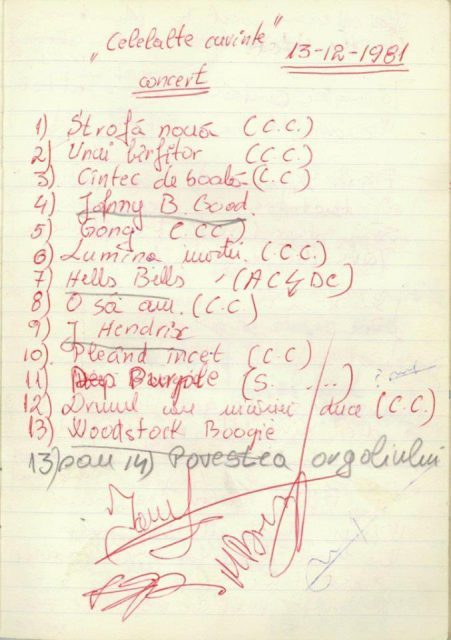 "Celelalte cuvinte" 13-12-1981
concert
1) Strofă nouă (C.C.)
2) Unui bîrfitor (C.C.)
3) Cîntec de boală (C.C)
4) Johny B. Good.
5) Gong (.CC.)
6) Lumina inotu. (C.C.)
7) Hells Bells - (AC⚡DC)
8) O să am. (C.C)
9) J. Hendrix
10) Pleând incet (C.C)
11) Deep Purple (S. ....)
12) Drumul duce (C.C.)
13) Woodstock Boogie
13) sau 14) Povestea orgoliului